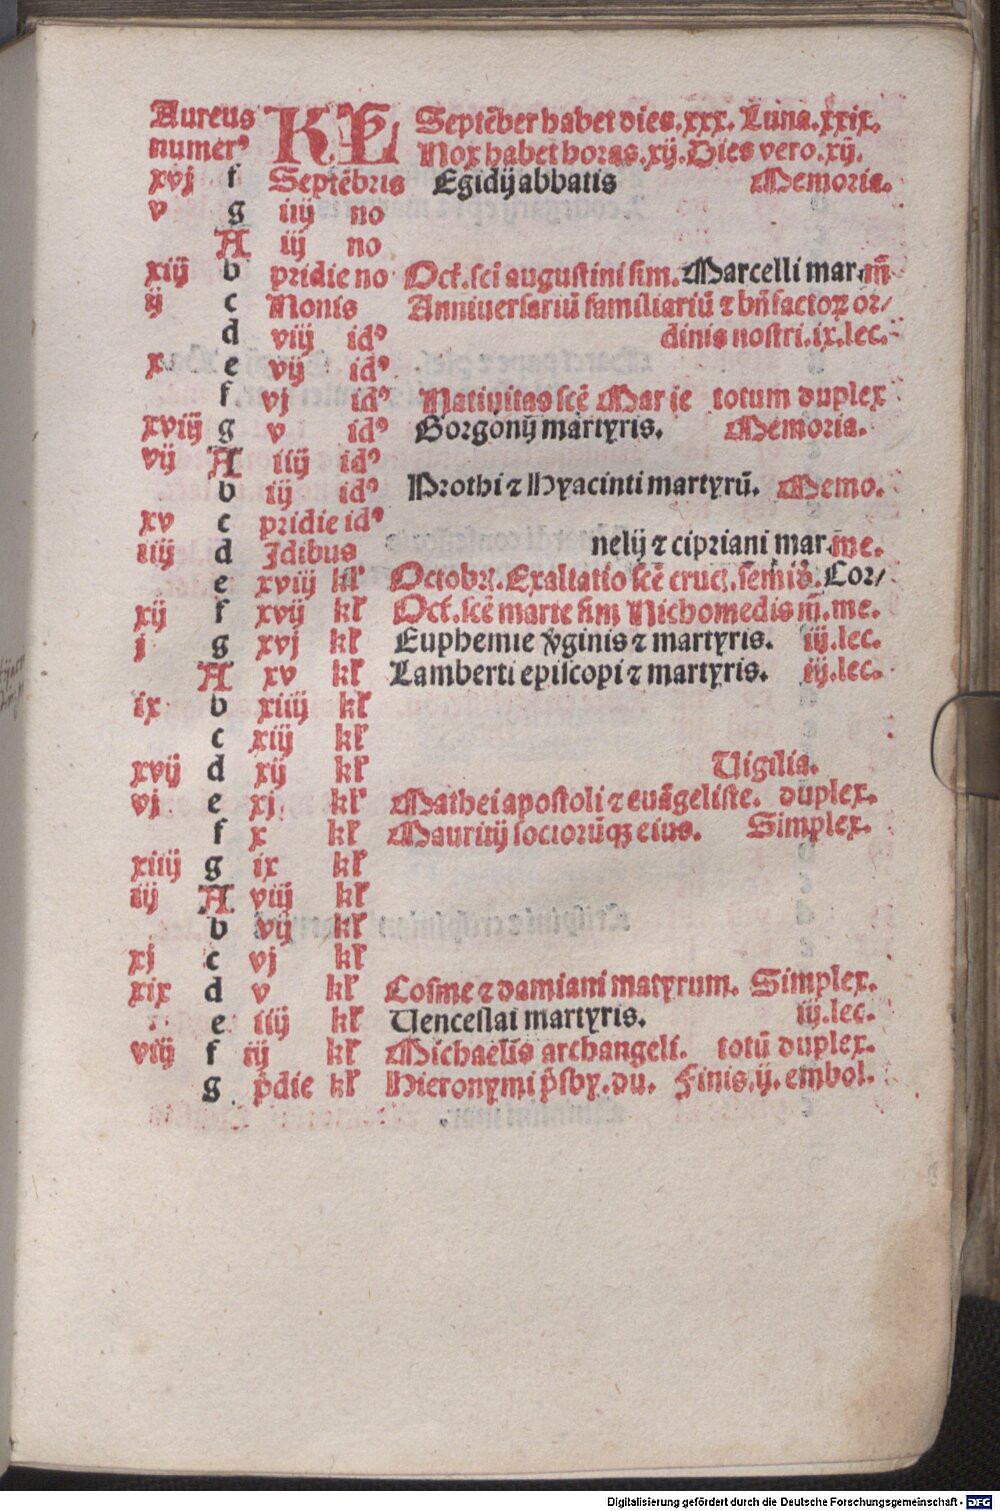 Aureus KL Septēber habet dies.xxx. Luna.xxix.
numerꝰ Nox habet horas.xij. Dies vero.xij.
xvj f Septēbris Egidij abbatis Memoria.
v g iiij no
A iij no
xiij b pridie no Oct̄. sct̄i augustini sim. Marcelli mar. m̄
ij c Nonis Anniuersariū familiariū ⁊ bn̄factoꝝ or/
d viij idꝰ dinis nostri. ix. lec.
x e vij idꝰ
f vj idꝰ Natiuitas scē Marie totum duplex
xviij g v idꝰ Gorgonij martyris. Memoria.
vij A iiij idꝰ
b iij idꝰ Prothi ⁊ Hyacinti martyrū. Memo.
xv c pridie idꝰ
iiij d Idibus nelij ⁊ cipriani mar. me.
e xviij kl̄ Octobꝝ. Exaltatio scē cruc. semiď. Cor/
xij f xvij kl̄ Oct̄. scē marie sim Nichomedis m̄. me.
j g xvj kl̄ Euphemie v̄ginis ⁊ martyris. iij. lec.
A xv kl̄ Lamberti episcopi ⁊ martyris. iij. lec.
ix b xiiij kl̄
c xiij kl̄
xvij d xij kl̄ Vigilia.
vj e xj kl̄ Mathei apostoli ⁊ euāgeliste. duplex.
f x kl̄ Mauritij sociorūqꝫ eius. Simplex.
xiiij g ix kl̄
iij A viij kl̄
b vij kl̄
xj c vj kl̄
xix d v kl̄ Cosme ⁊ damiani matyrum. Simplex.
e iiij kl̄ Venceslai martyris. iij. lec.
viij f iij kl̄ Michaelis archangeli. totū duplex.
g p̄die kl̄ Hieronymi p̄sby. du. Finis. ij. embol.
Digitalisierung gefördert durch die Deutsche Forschungsgemeinschaft - DFG